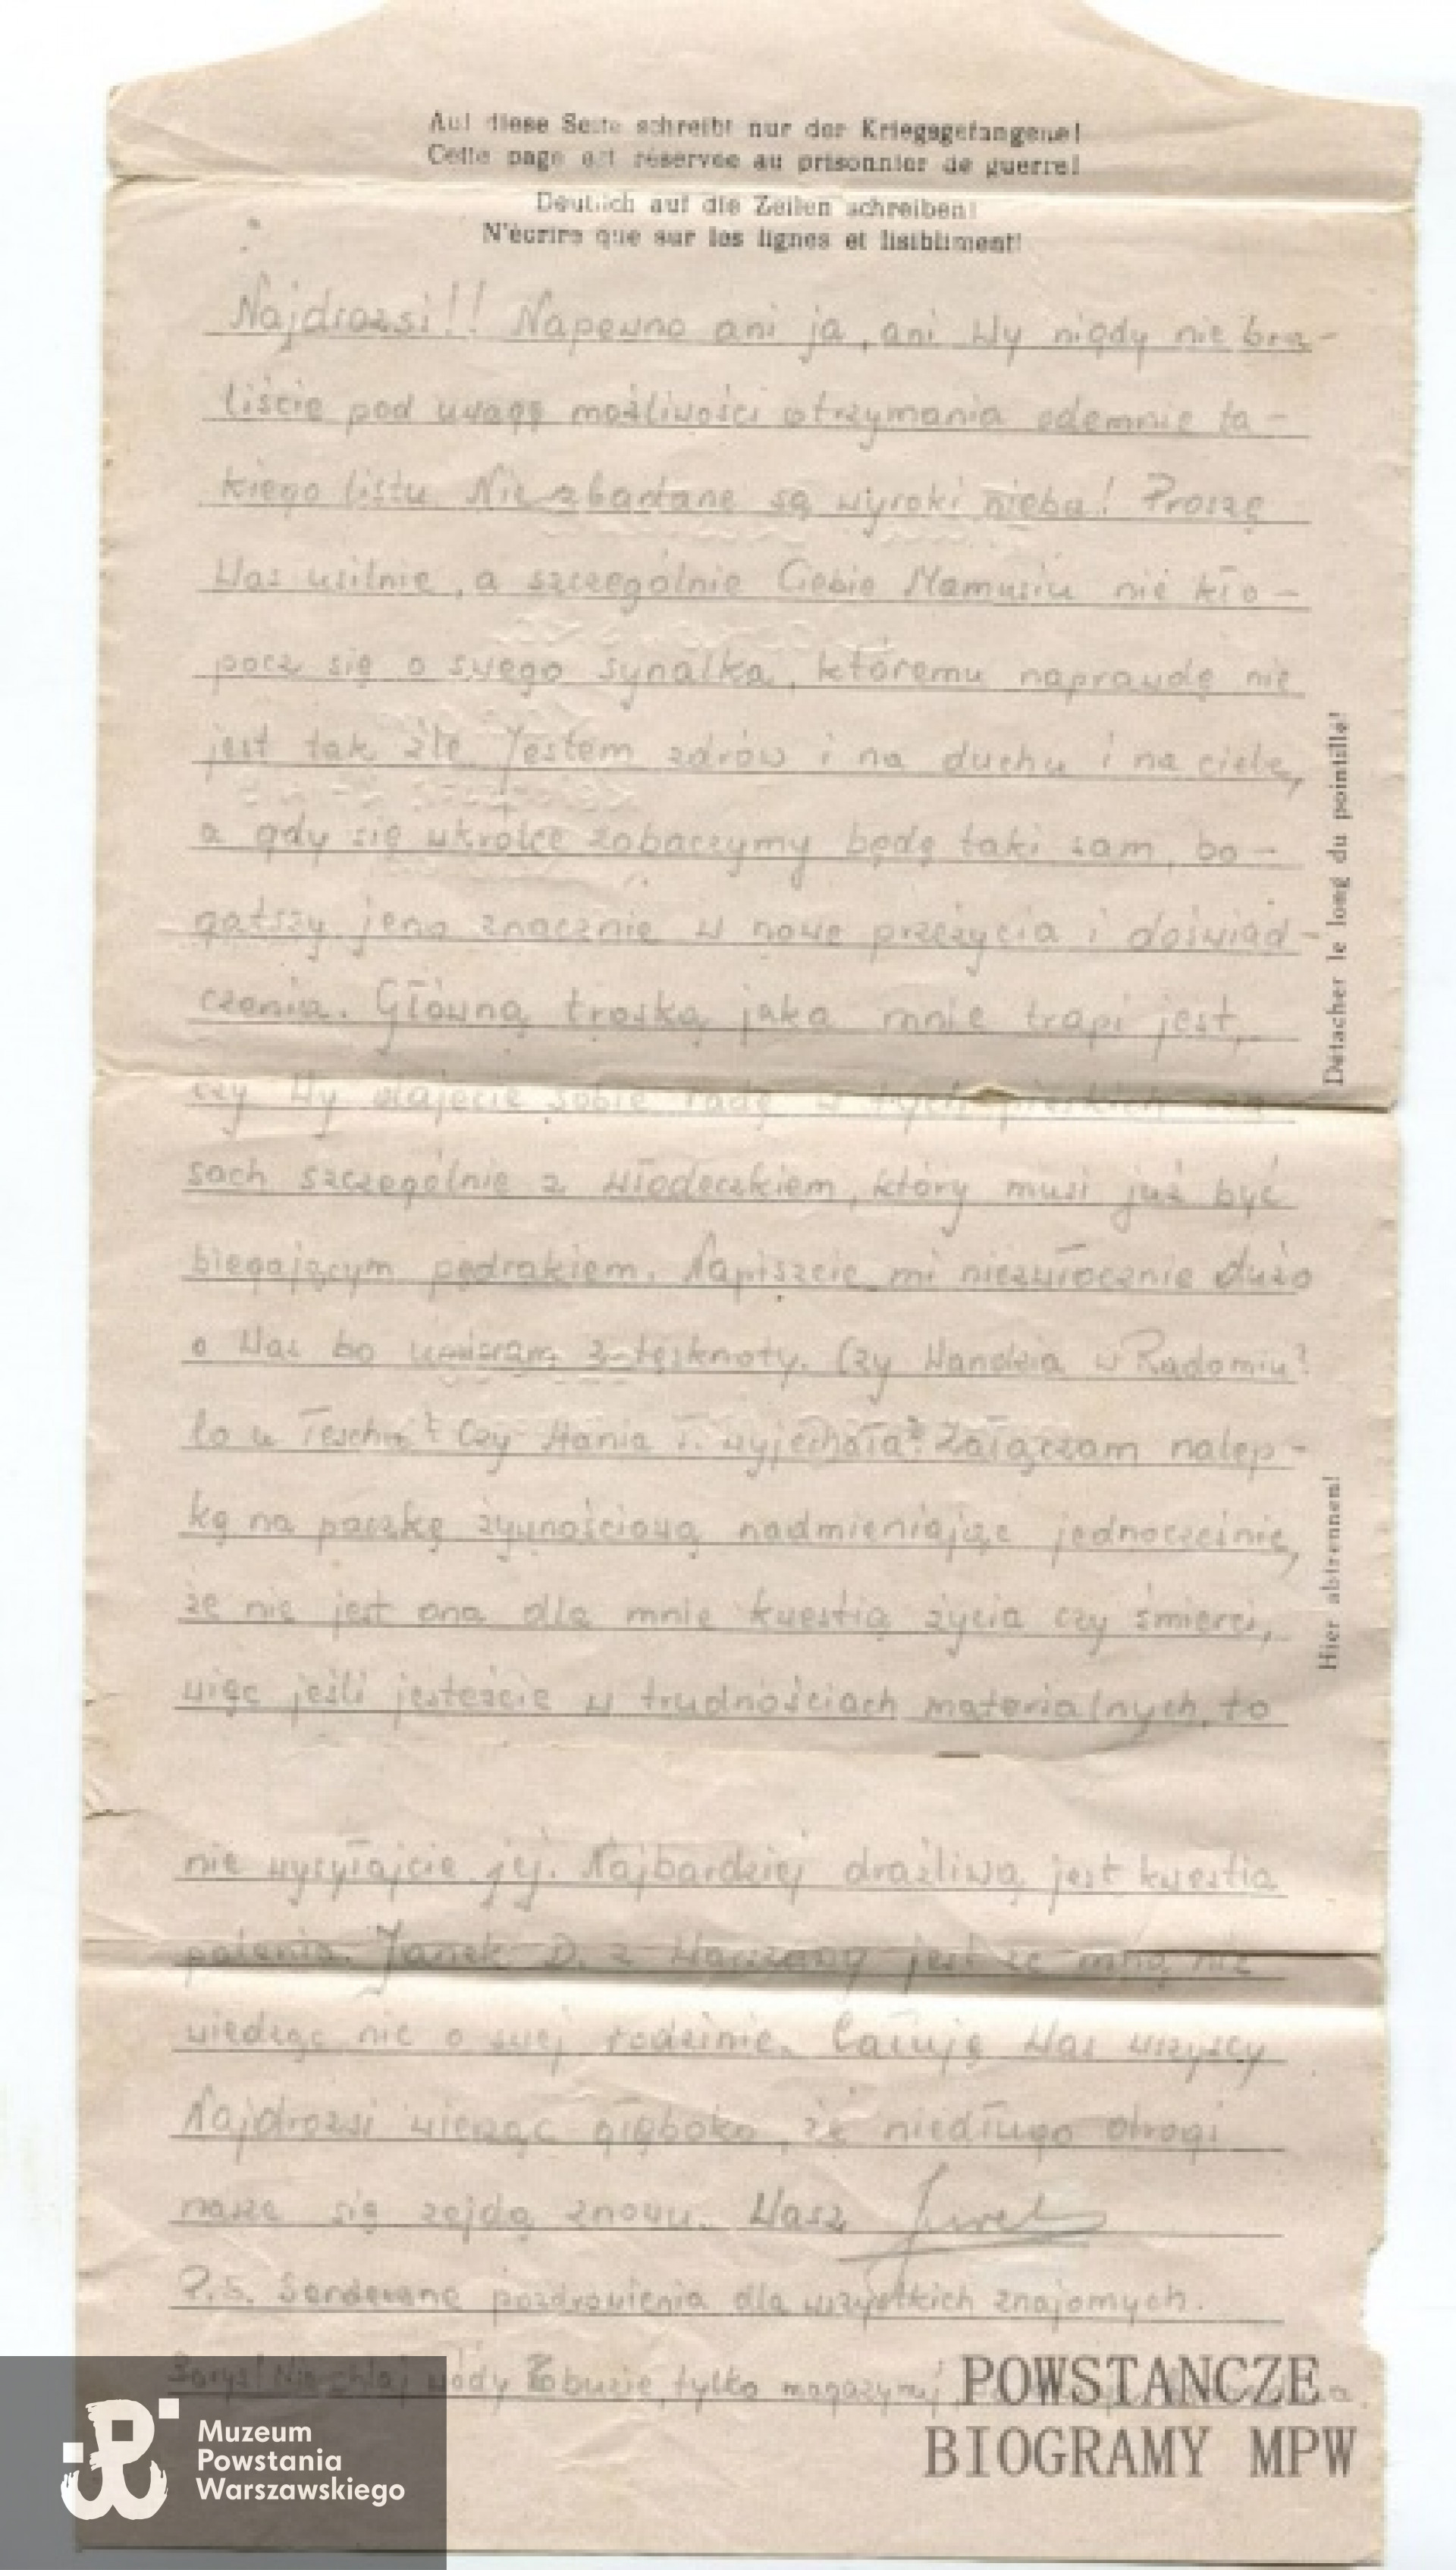 Auf diese Seite schreibt nur der Kriegsgefangene!
Cette page est réservée au prisonnier de guerre!
Deutlich auf die Zeilen schreiben!
N'écrire que sur les lignes et lisibliment!
Najdrożsi!! Napewno ani ja, ani Wy nigdy nie bra-
liście pod uwagę możliwości otrzymania odemnie ta-
kiego listu. Nie zbadane są wyroki nieba! Proszę
Was usilnie, a szczególnie Ciebie Mamusiu nie kło-
pocz się o swego synalka, któremu naprawdę nie
jest tak źle. Jestem zdrów i na duchu i na ciele,
a gdy się wkrótce zobaczymy będę taki sam, bo-
gatszy jeno znacznie w nowe przeżycia i doświad-
czenia. Główną troską jaka mnie trapi jest,
czy Wy dajecie sobie radę w tych ciężkich cza
sach szczególnie z Włodeczkiem, który musi już być
biegającym pędrakiem. Napiszcie mi niezwłocznie dużo
o Was bo umieram z tęsknoty. Czy Wandzia w Radomiu?
Co u Czy Hania T. wyjechała? Załączam nalep-
kę na paczkę żywnościową nadmieniając jednocześnie,
że nie jest ona dla mnie kwestią życia czy śmierci,
więc jeśli jesteście w trudnościach materialnych, to
nie wysyłajcie jej. Najbardziej drażliwą jest kwestia
palenia. Janek D. z Warszawy jest ze mną nie
wiedząc nic o swej rodzinie. Całuję Was wszyscy
Najdrożsi wierząc głęboko, że niedługo drogi
nasze się zejdą znowu. Wasz Jurek
P.S. Serdeczne pozdrowienia dla wszystkich znajomych.
Nie chlaj wódy łobuzie, tylko magazynuj
Détacher le long du pointillé!
Hier abtrennen!
Muzeum
Powstania
Warszawskiego
POWSTAŃCZE
BIOGRAMY MPW